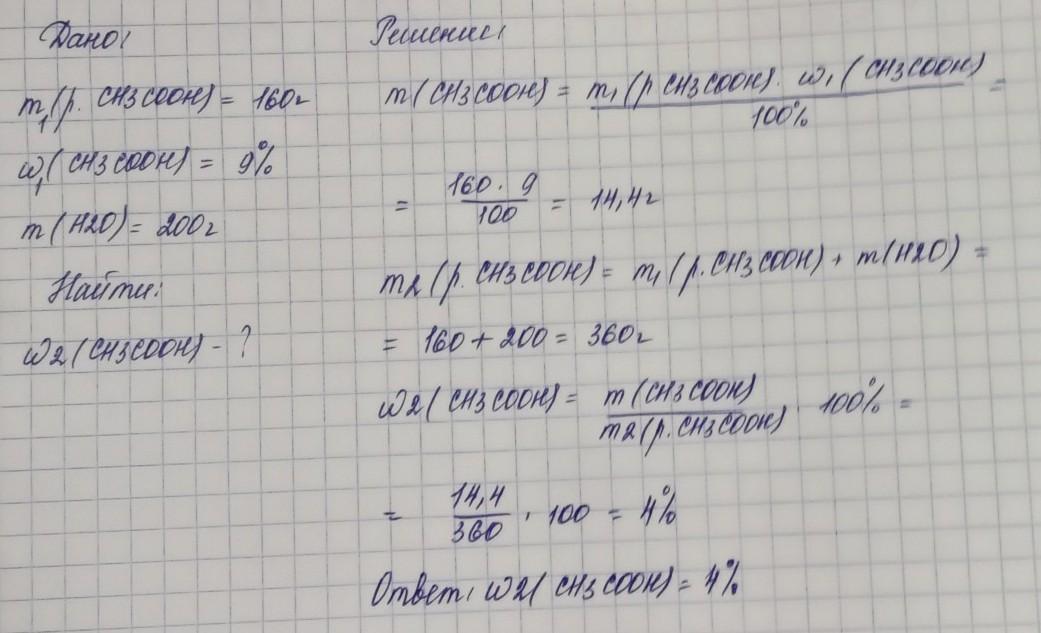 Дано:
m1(р. CH3COOH) = 160г
ω1(CH3COOH) = 9%
m(H2O) = 200г
Найти:
ω2(CH3COOH) - ?
Решение:
m(CH3COOH) = m1(р CH3COOH) · ω1(CH3COOH) =
100%
= 160 · 9 = 14,4г
100
m2(р. CH3COOH) = m1(р. CH3COOH) + m(H2O) =
= 160 + 200 = 360г
ω2(CH3COOH) = m(CH3COOH) · 100% =
m2(р. CH3COOH)
= 14,4 · 100 = 4%
360
Ответ: ω2(CH3COOH) = 4%